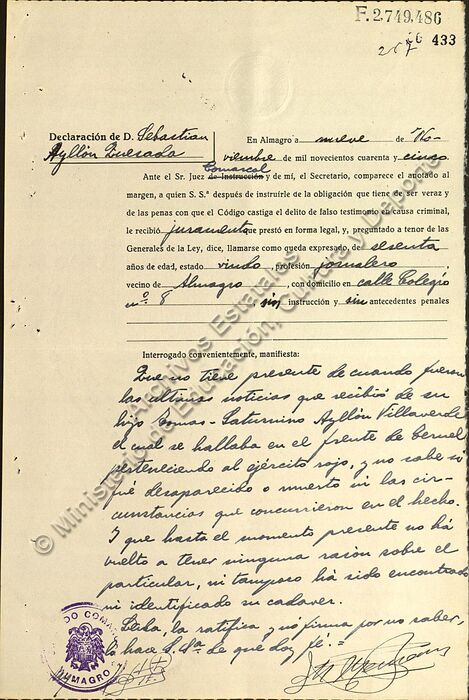 F.2.749.486
267
433
Declaración de D. Sebastian
Ayllón Quesada
En Almagro a nueve de No-
viembre de mil novecientos cuarenta y cinco
Comarcal
Ante el Sr. Juez de Instrucción y de mí, el Secretario, comparece el anotado al
margen, a quien S. Sª después de instruirle de la obligación que tiene de ser veraz y
de las penas con que el Código castiga el delito de falso testimonio en causa criminal,
le recibió juramento que prestó en forma legal, y, preguntado a tenor de las
Generales de la Ley, dice, llamarse como queda expresado, de sesenta
años de edad, estado viudo, profesión jornalero,
vecino de Almagro, con domicilio en calle Colegio
nº 8, sin instrucción y sin antecedentes penales
Interrogado convenientemente, manifiesta:
Que no tiene presente de cuando fueron
las ultimas noticias que recibió de su
hijo Tomas-Saturnino Ayllón Villaverde
el cual se hallaba en el frente de Teruel
perteneciendo al ejército rojo, y no sabe si
fué desaparecido o muerto ni las cir-
cunstancias que concurrieron en el hecho.
Y que hasta el momento presente no há
vuelto a tener ninguna razón sobre el
particular, ni tampoco há sido encontrado
ni identificado su cadaver.
Leida, la ratifica y nó firma por no saber,
lo hace S. Sª de que doy fé.=
JUZGADO COMARCAL
ALMAGRO
© Ministerio de Educación, Cultura y Deporte
Archivos Estatales